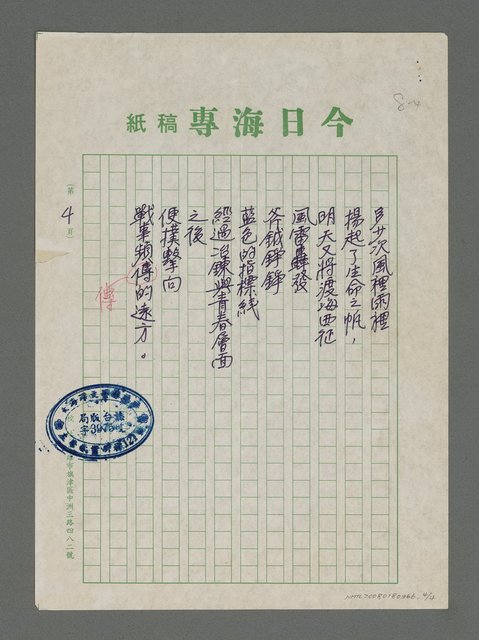 8-4
今日海專稿紙
多少次風裡雨裡
揚起了生命之帆，
明天又將渡海西征
風雷轟發
斧鉞錚錚
藍色的指標線
經過冶鍊與青春層面
之後
便撲擊向
戰事頻傳的遠方。
傳
(第 4 頁)
局版台誌
字3975號
市旗津區中洲三路四八二號
NMTL20080180966 4/4